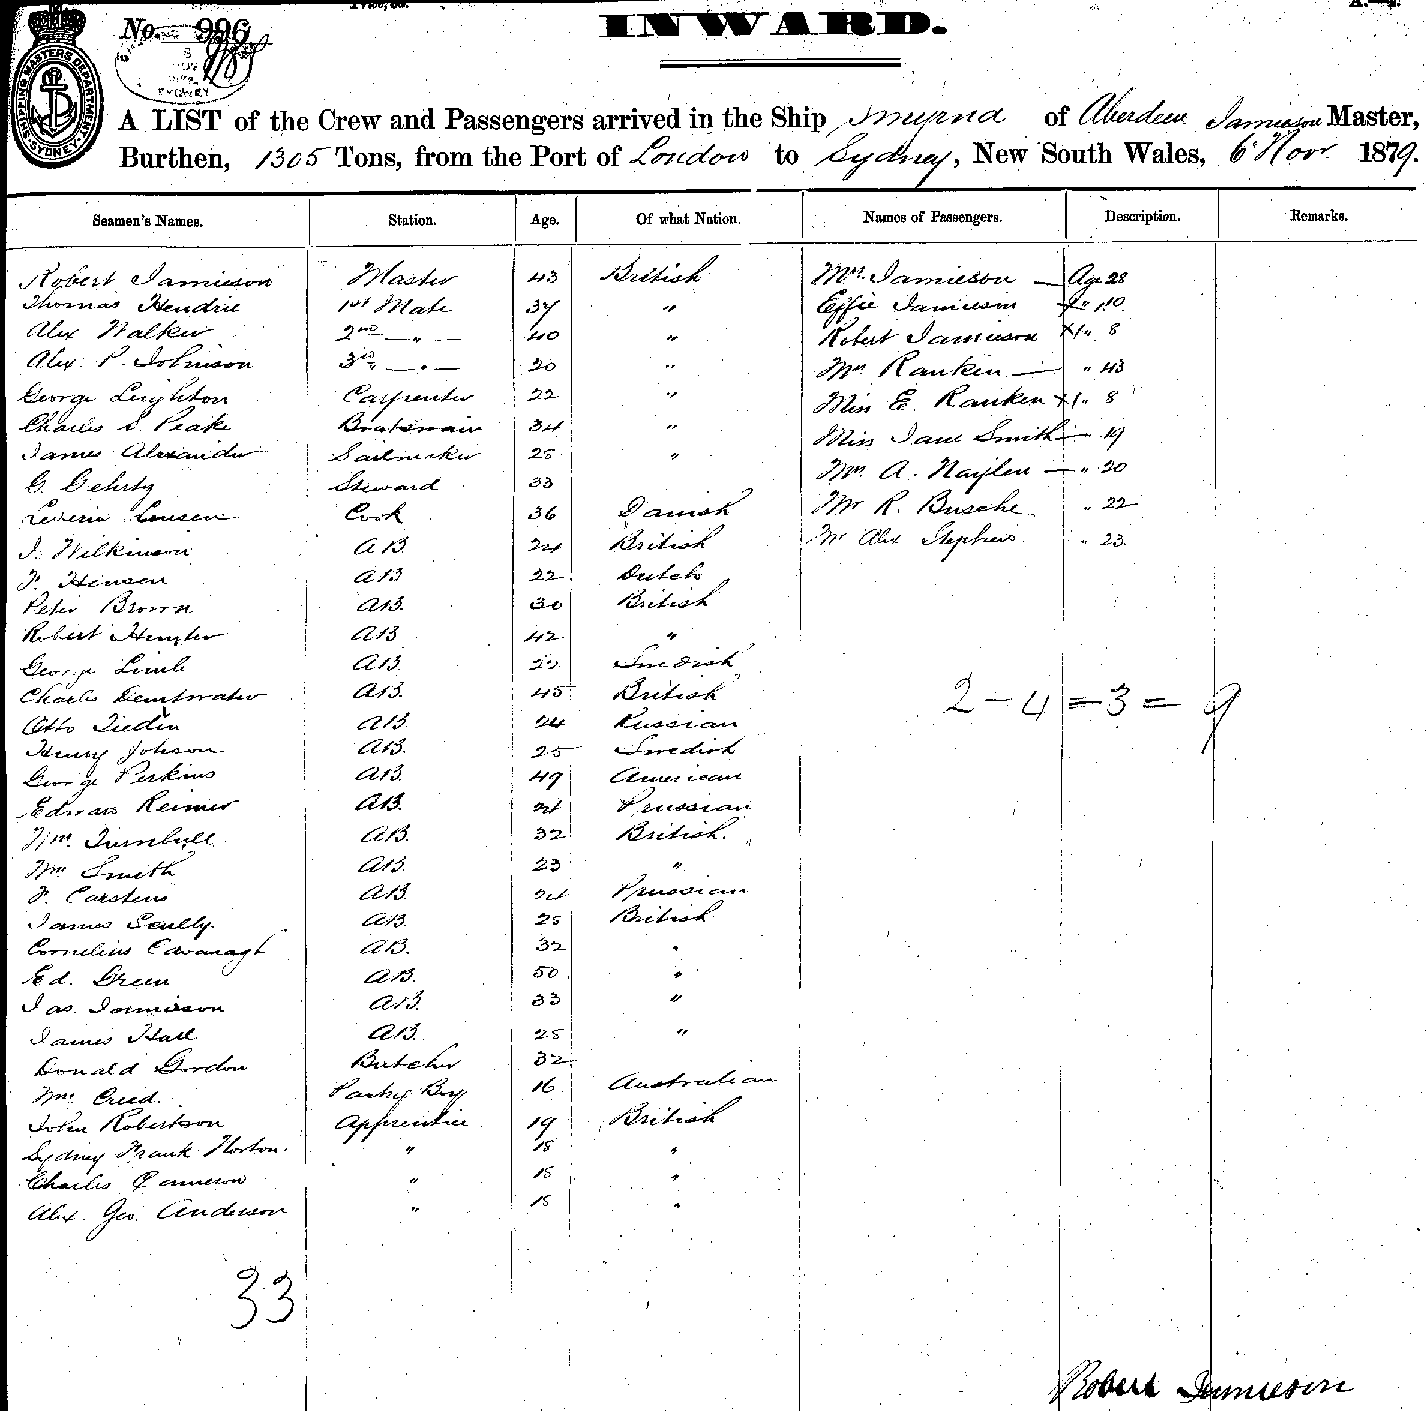 No. 996
INWARD.
SHIPPING MASTERS DEPARTMENT SYDNEY
A LIST of the Crew and Passengers arrived in the Ship Smyrna of Aberdeen Jamieson Master,
Burthen, 1305 Tons, from the Port of London to Sydney, New South Wales, 6 Novr 1879.
Seamen's Names. Station. Age. Of what Nation. Names of Passengers. Description. Remarks.
Robert Jamieson Master 43 British Mrs. Jamieson — Age 28
Thomas Hendrie 1st Mate 37 " Effie Jamieson " 10
Alex Walker 2nd — " — 40 " Robert Jamieson " 8
Alex. P. Johnson 3rd — " — 20 " Mrs Ranken — " 43
George Leighton Carpenter 22 " Miss E. Ranken " 8
Charles S. Peake Boatswain 34 " Miss Jane Smith — " 19
James Alexander Sailmaker 25 " Mrs. A. Naylen — " 20
G. Gehrtz Steward 33 Mr R. Busche " 22
Cook 36 Danish Mr Alex Stephens " 23
J. Wilkinson AB. 24 British
F. Hensen AB 22 Dutch
Peter Brown AB. 30 British
Robert AB 42 "
George AB. Swedish
Charles AB. 45 British
Otto Tiedin AB. 24 Russian
Henry Johson AB. 25 Swedish
George Perkins AB. 49 American
Edward Reimer AB. Prussian
Wm. Turnbull AB. 32 British.
Wm Smith AB. 23 "
F. Carstens AB. 24 Prussian
James Scully. AB. 25 British
Cornelius Cavanagh AB. 32 "
Ed. Green AB. 50 "
Jas. Jamieson AB. 33 "
James Hall AB. 25 "
Donald Gordon Butcher 32
Wm. Creed. Pantry Boy 16 Australian
John Robertson Apprentice 19 British
Sydney Frank Horton. " 18 "
Charles Cameron " 18 "
Alex. Geo. Anderson " 18 "
2 – 4 = 3 = 9
33
Robert Jamieson